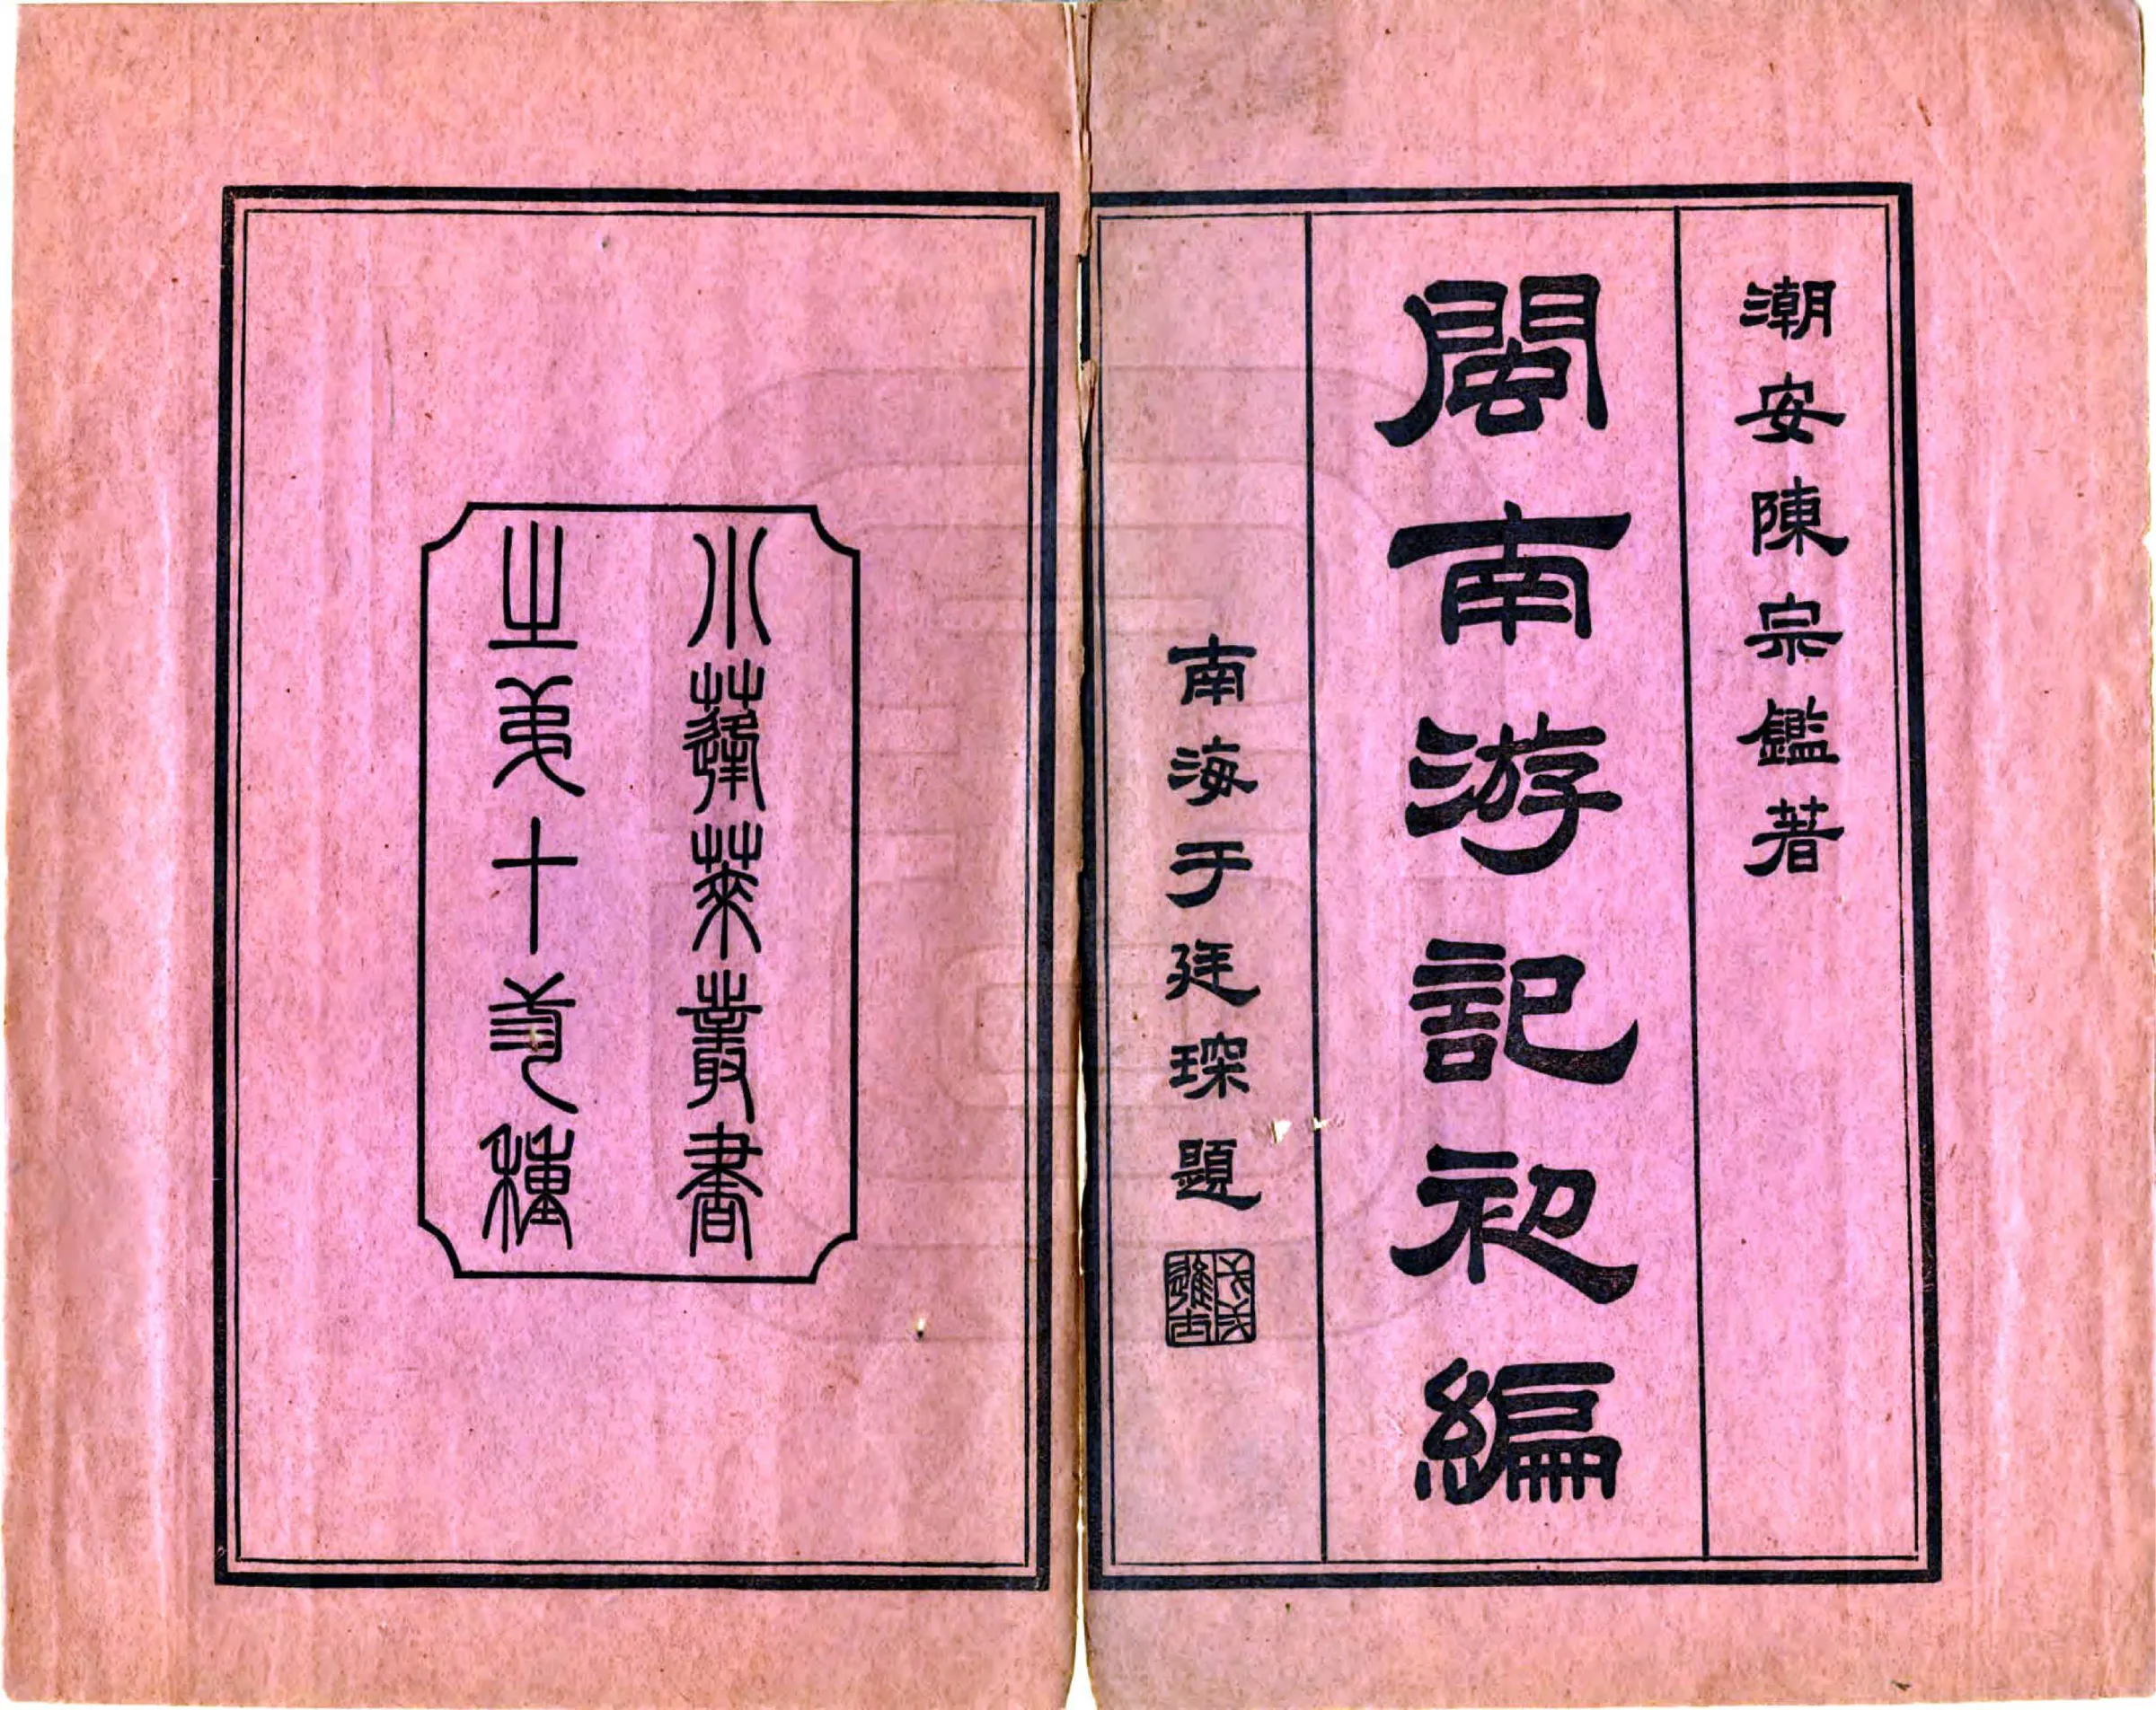 潮安陳宗鑑著
閩南游記初編
南海于廷琛題
小蓬萊叢書
之弟十弎種